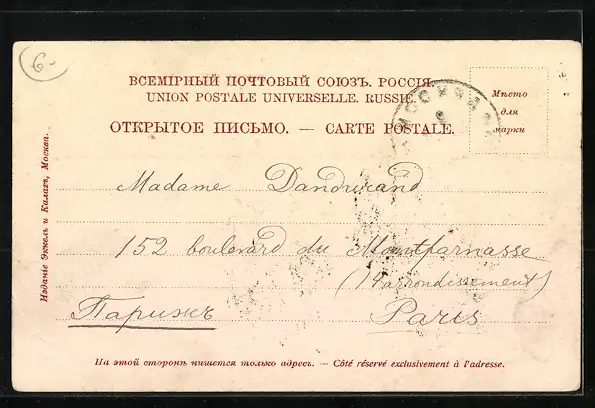 6-
ВСЕМІРНЫЙ ПОЧТОВЫЙ СОЮЗЪ. РОССІЯ.
UNION POSTALE UNIVERSELLE. RUSSIE.
ОТКРЫТОЕ ПИСЬМО. — CARTE POSTALE.
Мѣсто
для
марки
МОСКВА
Madame Dandurand
152 boulevard du Montparnasse
(14 arrondissement)
Парижъ Paris
На этой сторонѣ пишется только адресъ. — Côté réservé exclusivement à l'adresse.
Изданіе Эккель и Калахъ, Москва.